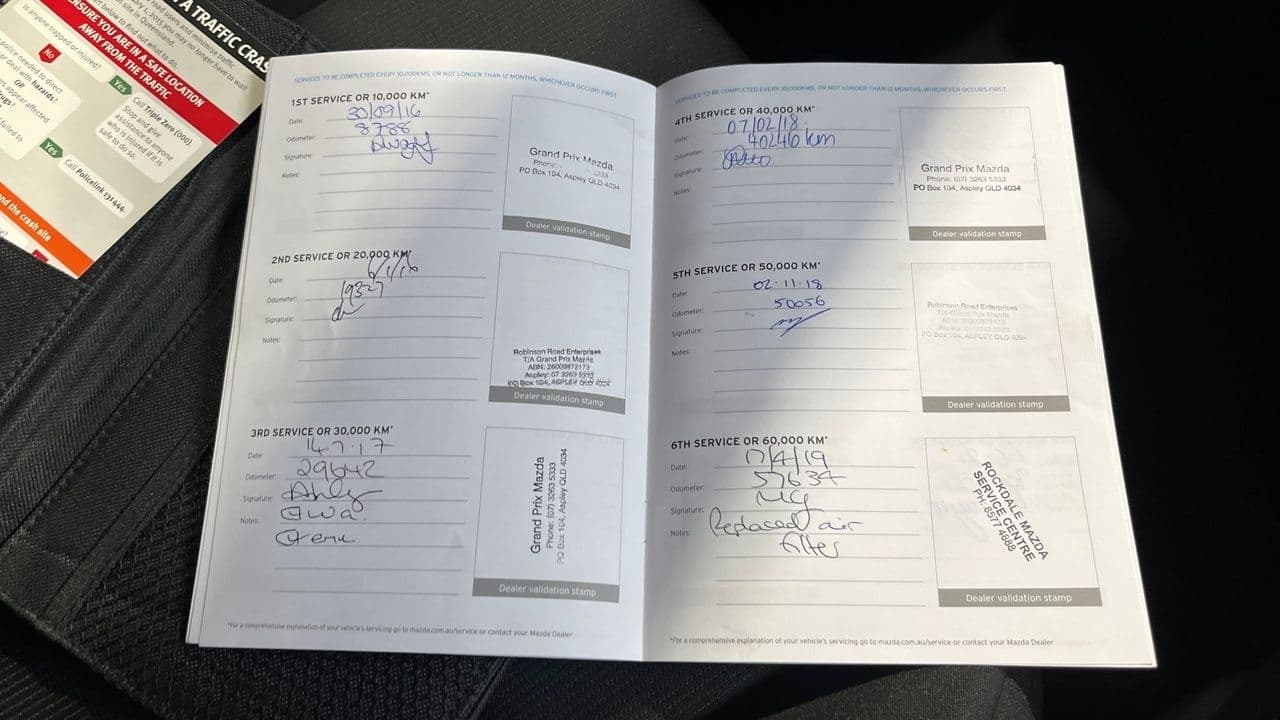 A TRAFFIC CRAS
road users and minimise traffic
site in Queensland.
below to find out what to do.
ENSURE YOU ARE IN A SAFE LOCATION
AWAY FROM THE TRAFFIC
Is anyone trapped or injured?
No
Yes
Call Triple Zero (000).
Stop and give
assistance to anyone
who is injured if it is
safe to do so.
police needed to direct
or deal with hazards?
OR
appear affected
failed to
Yes
Call Policelink 131 444.
the crash site
SERVICES TO BE COMPLETED EVERY 10,000KMS, OR NOT LONGER THAN 12 MONTHS, WHICHEVER OCCURS FIRST
1ST SERVICE OR 10,000 KM*
Date: 30/09/16
Odometer: 8788
Signature:
Notes:
Grand Prix Mazda
Phone: 5333
PO Box 104, Aspley QLD 4034
Dealer validation stamp
2ND SERVICE OR 20,000 KM*
Date:
Odometer: 19327
Signature:
Notes:
Robinson Road Enterprises
T/A Grand Prix Mazda
ABN: 26009872173
Aspley: 07 3263 5333
PO Box 104, ASPLEY QLD 4034
Dealer validation stamp
3RD SERVICE OR 30,000 KM*
Date: 14.7.17
Odometer: 29642
Signature:
Notes:
Grand Prix Mazda
Phone: (07) 3263 5333
PO Box 104, Aspley QLD 4034
Dealer validation stamp
*For a comprehensive explanation of your vehicle's servicing go to mazda.com.au/service or contact your Mazda Dealer
SERVICES TO BE COMPLETED EVERY 10,000KMS, OR NOT LONGER THAN 12 MONTHS, WHICHEVER OCCURS FIRST
4TH SERVICE OR 40,000 KM*
Date: 07/02/18.
Odometer: 40246 km
Signature:
Notes:
Grand Prix Mazda
Phone: (07) 3263 5333
PO Box 104, Aspley QLD 4034
Dealer validation stamp
5TH SERVICE OR 50,000 KM*
Date: 02.11.18
Odometer: 50056
Signature:
Notes:
Robinson Road Enterprises
T/A Grand Prix Mazda
PO Box 104, ASPLEY QLD 4034
Dealer validation stamp
6TH SERVICE OR 60,000 KM*
Date: 17/4/19
Odometer: 57634
Signature:
Notes: Replaced air
filter
ROCKDALE MAZDA
SERVICE CENTRE
PH: 8577 4888
Dealer validation stamp
*For a comprehensive explanation of your vehicle's servicing go to mazda.com.au/service or contact your Mazda Dealer